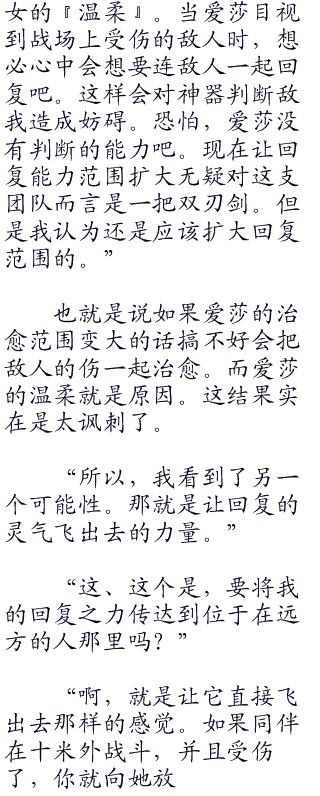 女的『温柔』。当爱莎目视
到战场上受伤的敌人时，想
必心中会想要连敌人一起回
复吧。这样会对神器判断敌
我造成妨碍。恐怕，爱莎没
有判断的能力吧。现在让回
复能力范围扩大无疑对这支
团队而言是一把双刃剑。但
是我认为还是应该扩大回复
范围的。”
也就是说如果爱莎的治
愈范围变大的话搞不好会把
敌人的伤一起治愈。而爱莎
的温柔就是原因。这结果实
在是太讽刺了。
“所以，我看到了另一
个可能性。那就是让回复的
灵气飞出去的力量。”
“这、这个是，要将我
的回复之力传达到位于在远
方的人那里吗？”
“啊，就是让它直接飞
出去那样的感觉。如果同伴
在十米外战斗，并且受伤
了，你就向她放